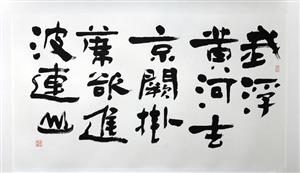 我浮
黄河去
京闕掛
蓆欲進
波連山